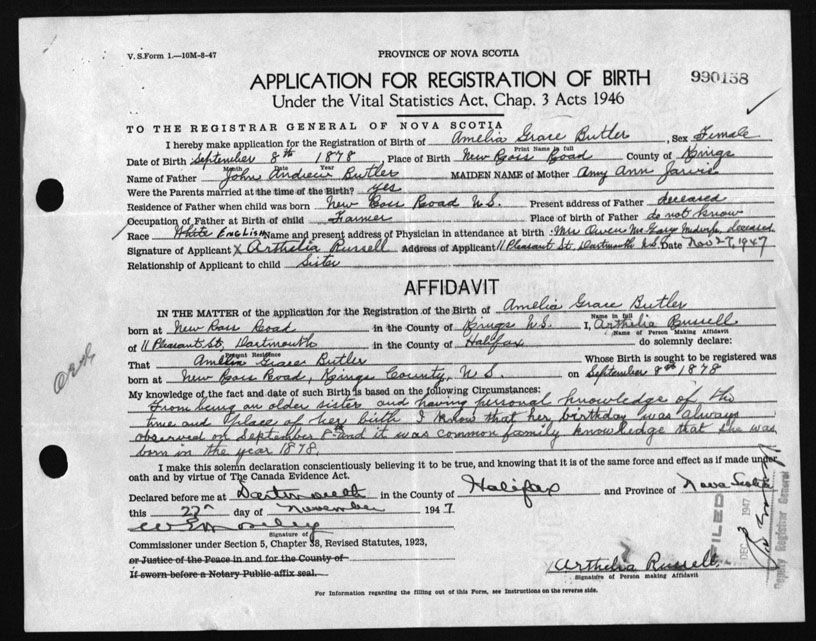 V. S. Form 1.—10M-8-47
PROVINCE OF NOVA SCOTIA
APPLICATION FOR REGISTRATION OF BIRTH
990158
Under the Vital Statistics Act, Chap. 3 Acts 1946
TO THE REGISTRAR GENERAL OF NOVA SCOTIA
I hereby make application for the Registration of Birth of Amelia Grace Butler, Sex Female
Print Name in full
Date of Birth September 8th 1878, Place of Birth New Ross Road County of Kings
Month Day Year
Name of Father John Andrew Butler MAIDEN NAME of Mother Amy Ann Jarvis
Were the Parents married at the time of the Birth? yes
Residence of Father when child was born New Ross Road N.S. Present address of Father deceased
Occupation of Father at Birth of child Farmer Place of birth of Father do not know
Race White ENGLISH Name and present address of Physician in attendance at birth Mrs Owen McGary Midwife, deceased
Signature of Applicant X Arthelia Russell Address of Applicant 11 Pleasant St, Dartmouth N.S. Date Nov 27, 1947
Relationship of Applicant to child Sister
AFFIDAVIT
IN THE MATTER of the application for the Registration of the Birth of Amelia Grace Butler
Name in full
born at New Ross Road in the County of Kings N.S. I, Arthelia Russell
Name of Person Making Affidavit
of 11 Pleasant St, Dartmouth in the County of Halifax do solemnly declare:
Present Residence
That Amelia Grace Butler Whose Birth is sought to be registered was
born at New Ross Road, Kings County, N S on September 8th 1878
My knowledge of the fact and date of such Birth is based on the following Circumstances:
From being an older sister and having personal knowledge of the
time and place of her birth I know that her birthday was always
observed on September 8th and it was common family knowledge that she was
born in the year 1878.
I make this solemn declaration conscientiously believing it to be true, and knowing that it is of the same force and effect as if made under
oath and by virtue of The Canada Evidence Act.
Declared before me at Dartmouth in the County of Halifax and Province of Nova Scotia
this 27th day of November 1947
Signature of
Commissioner under Section 5, Chapter 38, Revised Statutes, 1923,
or Justice of the Peace in and for the County of
If sworn before a Notary Public affix seal.
Arthelia Russell.
Signature of Person making Affidavit
FILED
DEC 3 1947
Deputy Registrar General
For Information regarding the filling out of this Form, see Instructions on the reverse side.